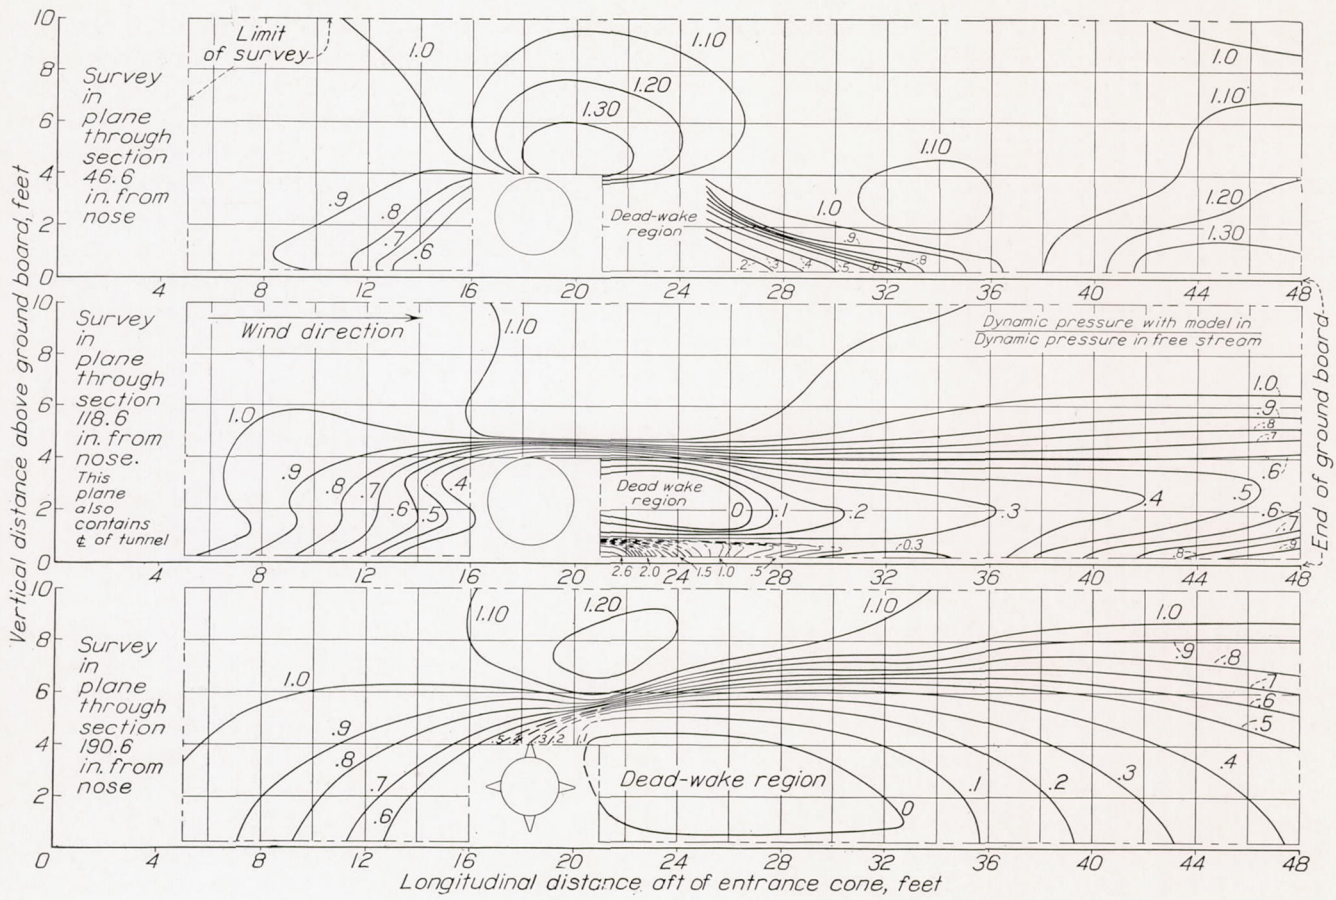 Vertical distance above ground board, feet
10
8
6
4
2
0
Survey
in
plane
through
section
46.6
in. from
nose
Limit
of survey
1.0
1.10
1.20
1.30
.9
.8
.7
.6
Dead-wake
region
.2
.3
.4
.5
.6
.7
.8
.9
1.0
1.10
1.0
1.10
1.20
1.30
4 8 12 16 20 24 28 32 36 40 44 48
10
8
6
4
2
0
Survey
in
plane
through
section
118.6
in. from
nose.
This
plane
also
contains
℄ of tunnel
Wind direction
1.10
Dynamic pressure with model in
Dynamic pressure in free stream
1.0
.9
.8
.7
.6
.5
.4
Dead wake
region
0
.1
.2
.3
.4
.5
.6
.7
.8
.9
1.0
.9
.8
.7
.6
0.3
2.6 2.0 1.5 1.0 .5
4 8 12 16 20 24 28 32 36 40 44 48
End of ground board
10
8
6
4
2
0
Survey
in
plane
through
section
190.6
in. from
nose
1.10
1.20
1.10
1.0
1.0
.9
.8
.7
.6
.5
.4
.3
.2
.1
.9
.8
.7
.6
.5
.4
.3
.2
.1
0
Dead-wake region
0 4 8 12 16 20 24 28 32 36 40 44 48
Longitudinal distance aft of entrance cone, feet